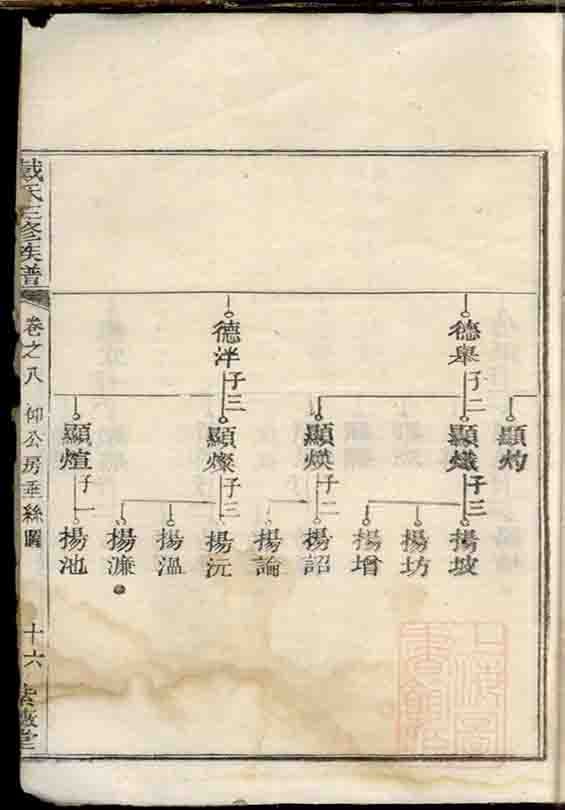 戴氏三修族譜
卷之八
仰公房垂絲圖
十六
德臯
子二
德洋
子三
顯灼
顯熾
子三
顯煐
子二
顯燦
子三
顯煊
子一
揚坡
揚坊
揚增
揚詔
揚論
揚沅
揚溫
揚濂
揚池